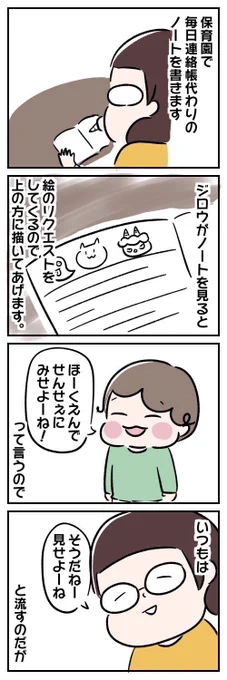 保育園で
毎日連絡帳代わりの
ノートを書きます
ジロウがノートを見ると
絵のリクエストを
してくるので
上の方に描いてあげます。
ほーくえんで
せんせぇに
みせよーね!
って言うので
いつもは
そうだねー
見せよーね
と流すのだが